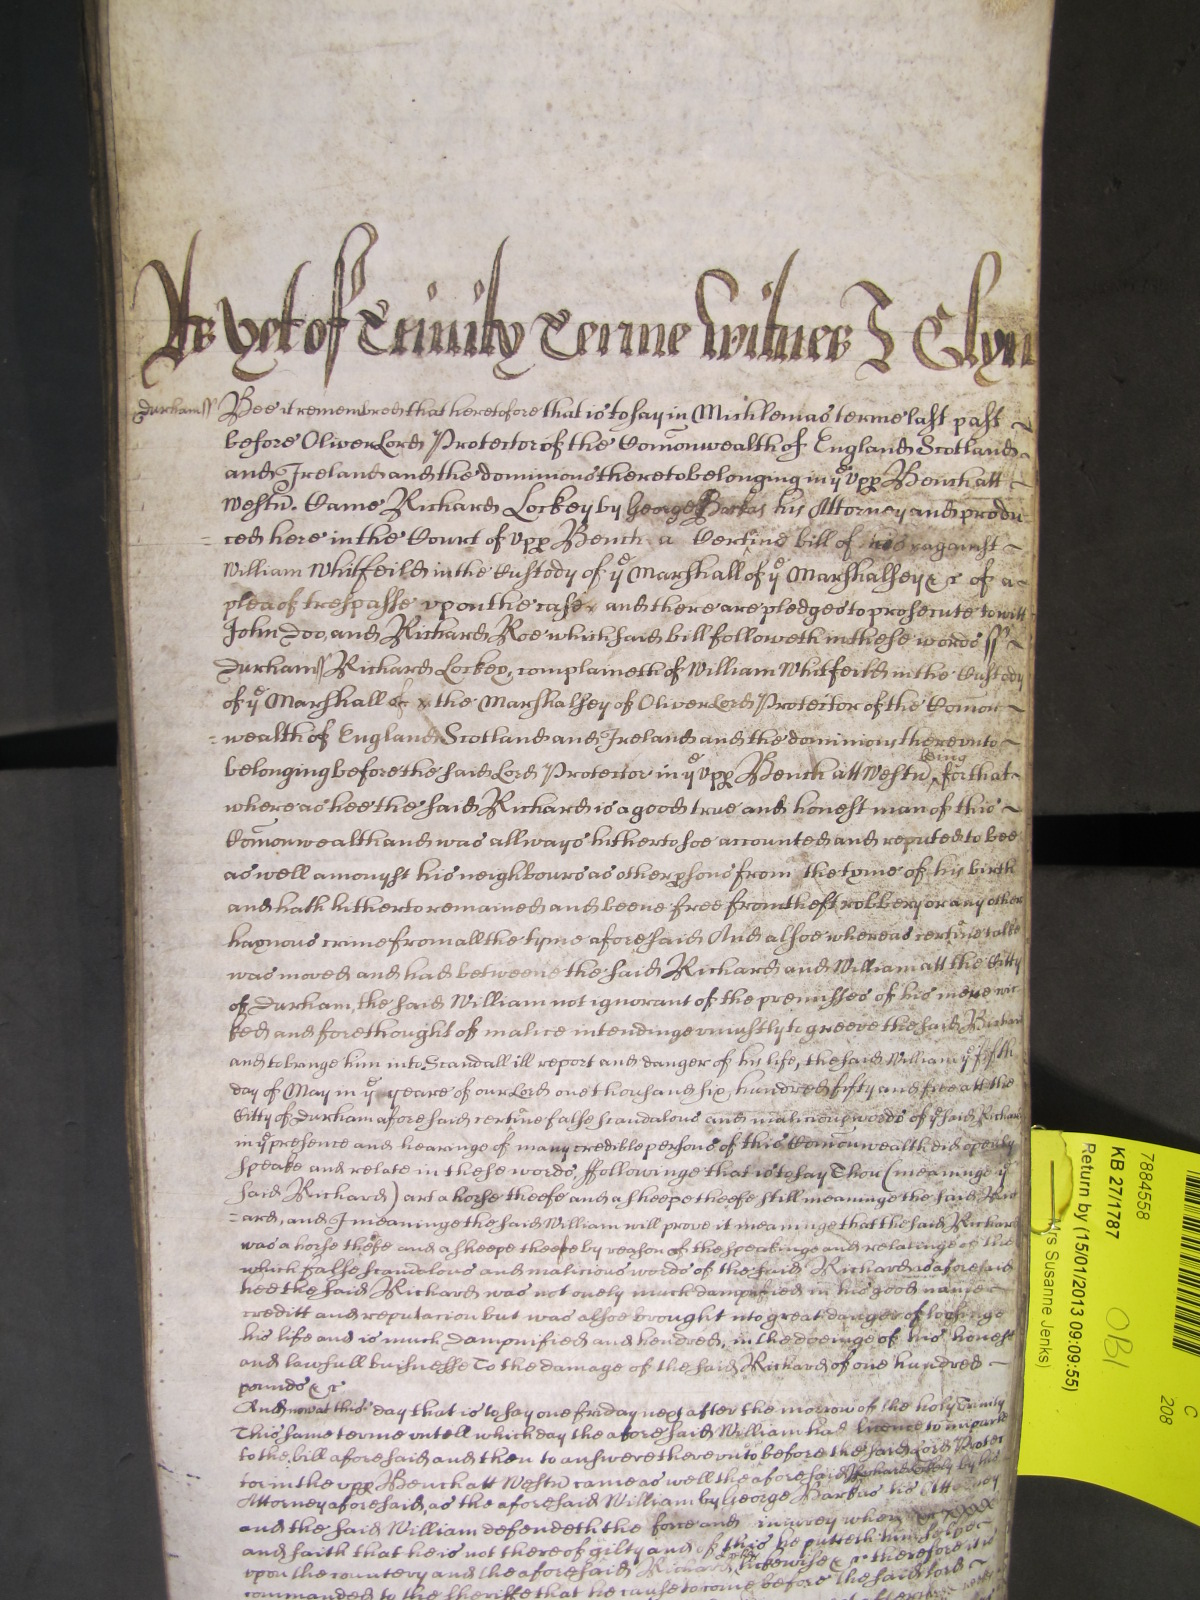 As yet of Trinity Terme Witnes J Glyn
Durham ss Bee it remembred that heretofore that is to say in Michlemas terme last past
before Oliver Lord Protector of the Comonwealth of England Scotland
and Ireland and the dominions thereto belonging in ye upp Bench att
Westm. Came Richard Lockey by George Barkas his Attorney and produ-
=ced here in the Court of upp Bench a Certine bill of his against
William Whitfeild in the Custody of ye Marshall of ye Marshalsey &c of a
plea of trespasse upon the case and there are pledges to prosecute to witt
John Doo, and Richard Roe which said bill followeth in these words ss
Durham ss Richard Lockey, complaineth of William Whitfeild in the Custody
of ye Marshall of the Marshalsey of Oliver Lord Protector of the Comon
=wealth of England Scotland and Ireland and the dominions thereunto
belonging before the said Lord Protector in ye upp Bench att Westm being for that
whereas hee the said Richard is a good true and honest man of this
Comonwealth and was allways hitherto soe accounted and reputed to bee
as well amongst his neighbours as other psons from the tyme of his birth
and hath hitherto remained and beene free from theft robbery or any other
haynous crime from all the tyme aforesaid And alsoe whereas certine talke
was moved and had betweene the said Richard and William att the Citty
of Durham, the said William not ignorant of the premisses of his mere wic
ked and forethought of malice intendinge uniustly to greeve the said Richard
and to bringe him into Scandall ill report and danger of his life, the said William ye fifth
day of May in ye yeare of our Lord one thousand six hundred fifty and five att the
Citty of Durham aforesaid certine false scandalous and malicious words of ye said Richard
in ye presence and hearinge of many credible persons of this Comonwealth did openly
speake and relate in these words ffollowinge that is to say Thou (meaninge ye
said Richard) art a horse theefe and a sheepe theefe still meaninge the said Rich
=ard, and I meaninge the said William will prove it meaninge that the said Richard
was a horse theefe and a sheepe theefe by reason of the speakinge and relatinge of the
which false scandalous and malicious words of the said Richard as aforesaid
hee the said Richard was not onely much dampnified in his good name
creditt and reputacion but was alsoe brought into great danger of loosinge
his life and is much dampnified and hindred, in the doeinge of his honest
and lawfull buisnesse To the damage of the said Richard of one hundred
pounds &c
And now at this day that is to say one friday next after the morrow of the holy Trinity
This same terme untill which day the aforesaid William had licence to imparle
to the bill aforesaid and then to answere thereunto before the said Lord Protec
tor in the upp Bench att Westm came as well the aforesaid Richard Lockey by his
Attorney aforesaid, as the aforesaid William by George Barkas his Attorney
and the said William defendeth the force and iniurey when &c
and saith that he is not thereof gilty and of this he putteth himselfe
upon the countrey and the aforesaid Richard likewise &c therefore it is
commanded to the sheriffe that he cause to come before the said lord
7884558
KB 27/1787
Return by (15/01/2013 09:09:55)
Mrs Susanne Jenks)
OBI
C
208